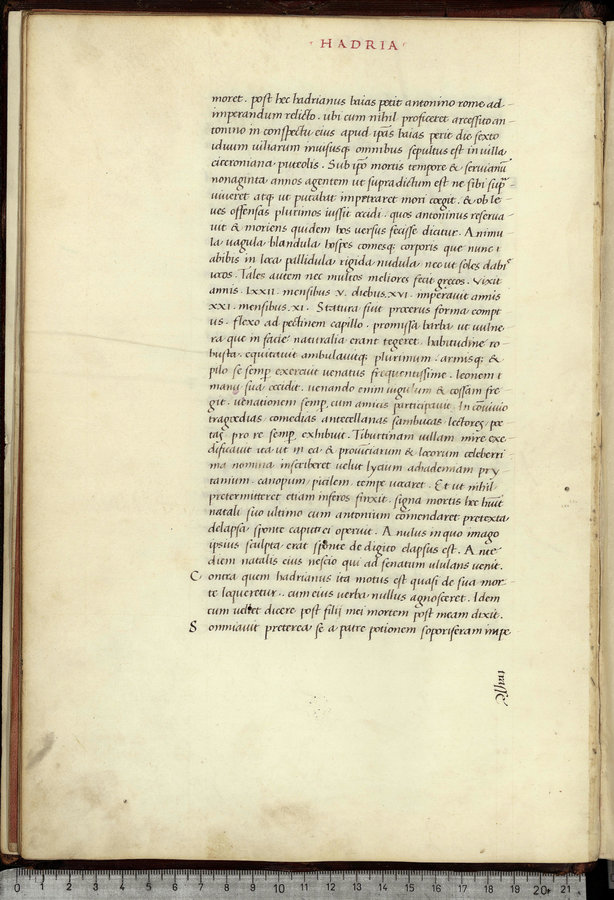 HADRIA
moret. post hec hadrianus baias petit antonino rome ad
imperandum relicto. ubi cum nihil proficeret arcessito an
tonino in conspectu eius apud ip̄as baias perit die sexto
iduum iuliarum inuisusq; omnibus sepultus est in uilla
ciceroniana puteolis. Sub ip̄o mortis tempore & seruianū
nonaginta annos agentem ut supra dictum est ne sibi sup̄
uiueret atq; ut putabat impetraret mori coegit. & ob le
ues offensas plurimos iussit occidi. quos antoninus reserua
uit & moriens quidem hos uersus fecisse dicitur. Animu
la uagula blandula hospes comesq; corporis que nunc
abibis in loca pallidula rigida nudula nec ut soles dabi'
iocos. Tales autem nec multos meliores fecit grecos. Vixit
annis. LXXII. mensibus V. diebus.XVI. imperauit annis
XXI. mensibus. XI. Statura fuit procerus forma compt
us. flexo ad pectinem capillo. promissa barba ut uulne
ra que in facie naturalia erant tegeret. habitudine ro
busta. equitauit ambulauitq; plurimum. armisq; &
pilo se semp̄ exercuit uenatus frequentissime. leonem
manu sua occidit. uenando enim iugulum & coxam fre
git. uenationem semp̄ cum amicis participauit. In conuiuio
tragoedias comedias antecellanas sambucas lectores poe
tas pro re semp̄ exhibuit. Tiburtinam uillam mire exe
dificauit ita ut in ea & prouinciarum & locorum celeberri
ma nomina inscriberet uelut lycium achademiam pry
tanium. canopum picilem tempe uocaret. Et ut nihil
pretermitteret etiam inferos finxit. signa mortis hec habuit
natali suo ultimo cum antonium comendaret pretexta
delapsa sponte caput ei operuit. Anulus in quo imago
ipsius sculpta erat sponte de digito elapsus est. Ante
diem natalis eius nescio qui ad senatum ululans uenit.
C ontra quem hadrianus ita motus est quasi de sua mor
te loqueretur. cum eius uerba nullus agnosceret. Idem
cum uellet dicere post filij mei mortem post meam dixit.
S omniauit preterea se a patre potionem soporiferam impe
trasse